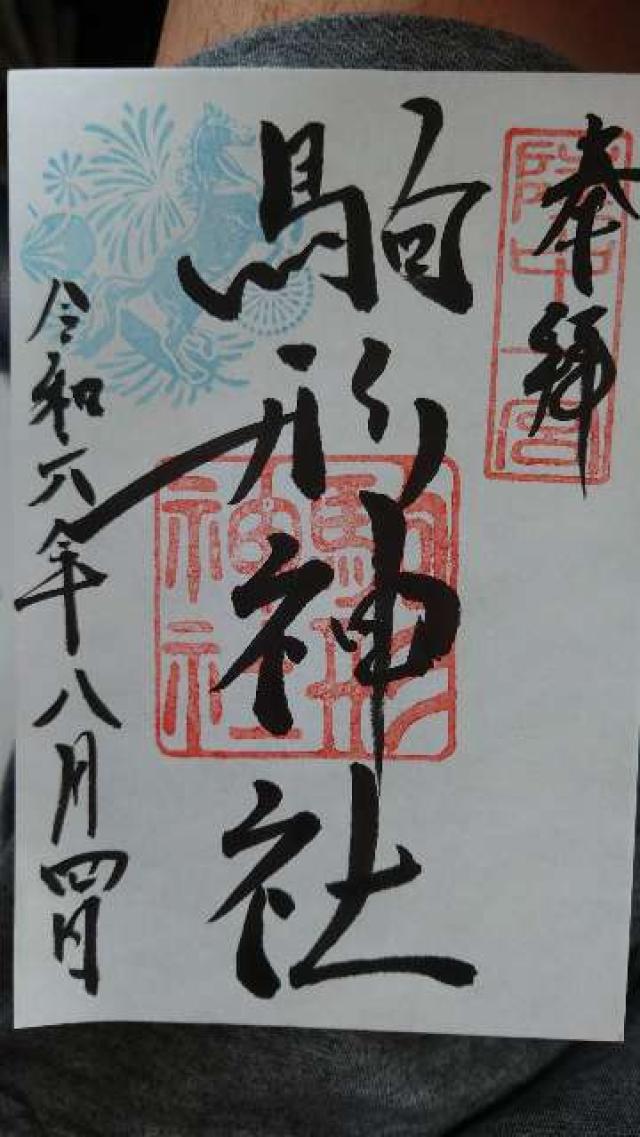 奉拝
陸中一宮
駒形神社
駒形神社
令和六年八月四日